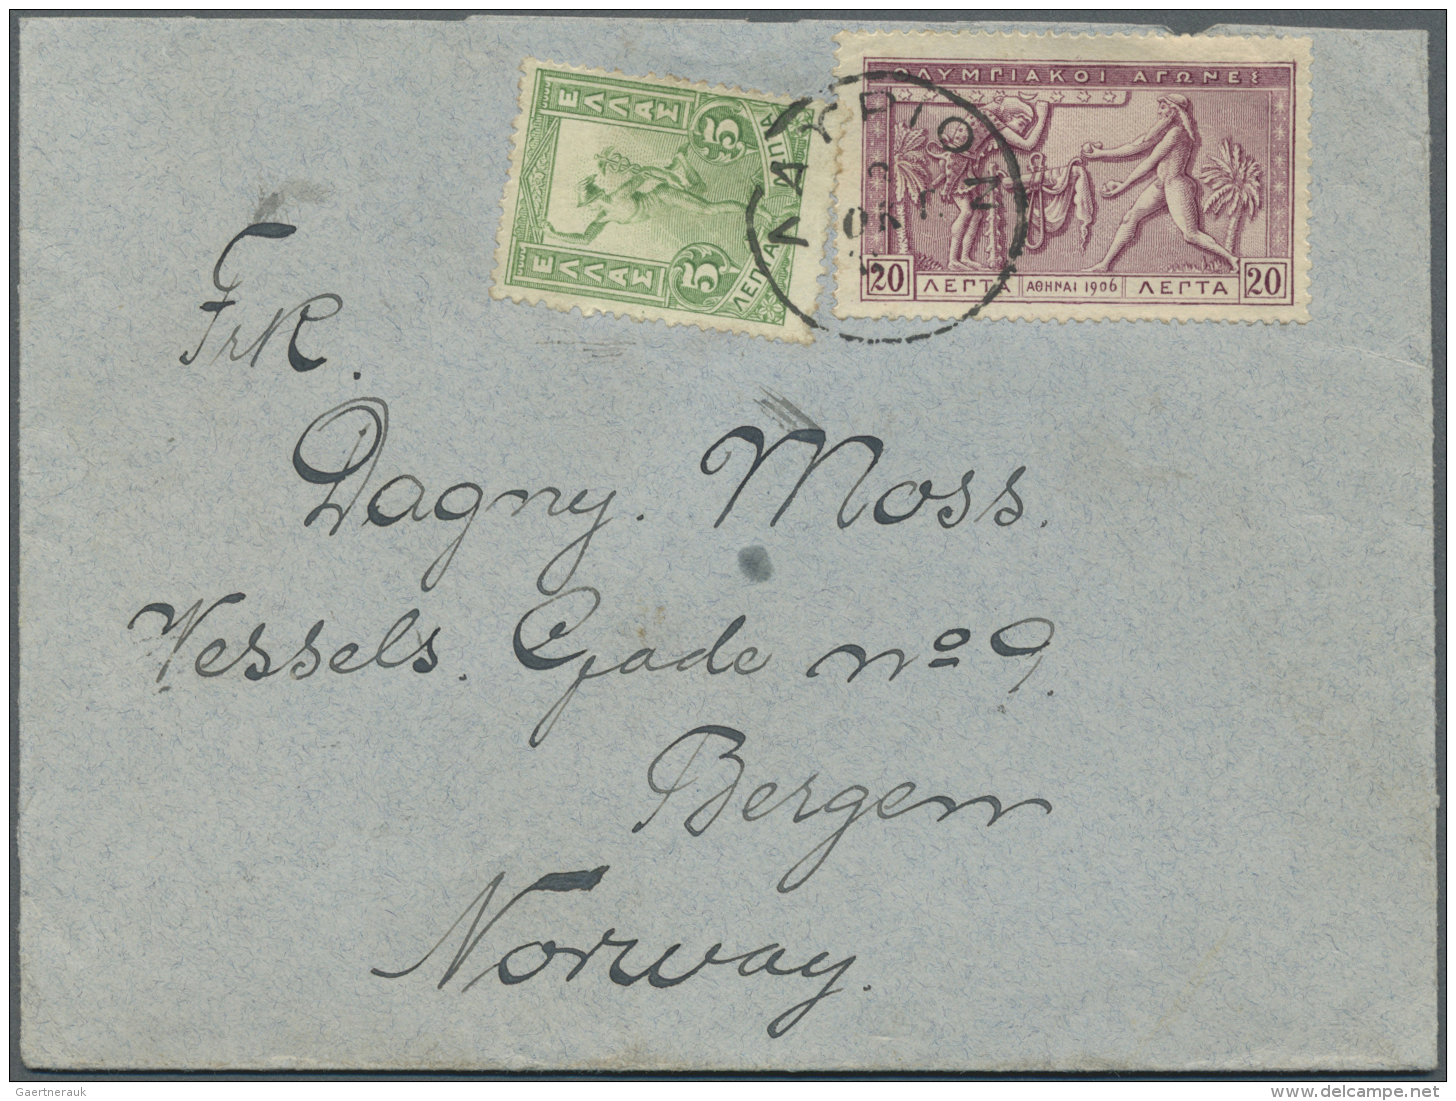 ΕΛΛΑΣ
5 5
ΛΕΠΤΑ ΛΕΠΤΑ
ΕΛΛΑΣ
ΟΛΥΜΠΙΑΚΟΙ ΑΓΩΝΕΣ
20 ΛΕΠΤΑ ΑΘΗΝΑΙ 1906 ΛΕΠΤΑ 20
ΛΑΥΡΙΟΝ
ΟΚΤ.
Frk.
Dagny. Moss.
Wessels. Gade no 9.
Bergen
Norway.
Gaertnerauk
delcampe.net